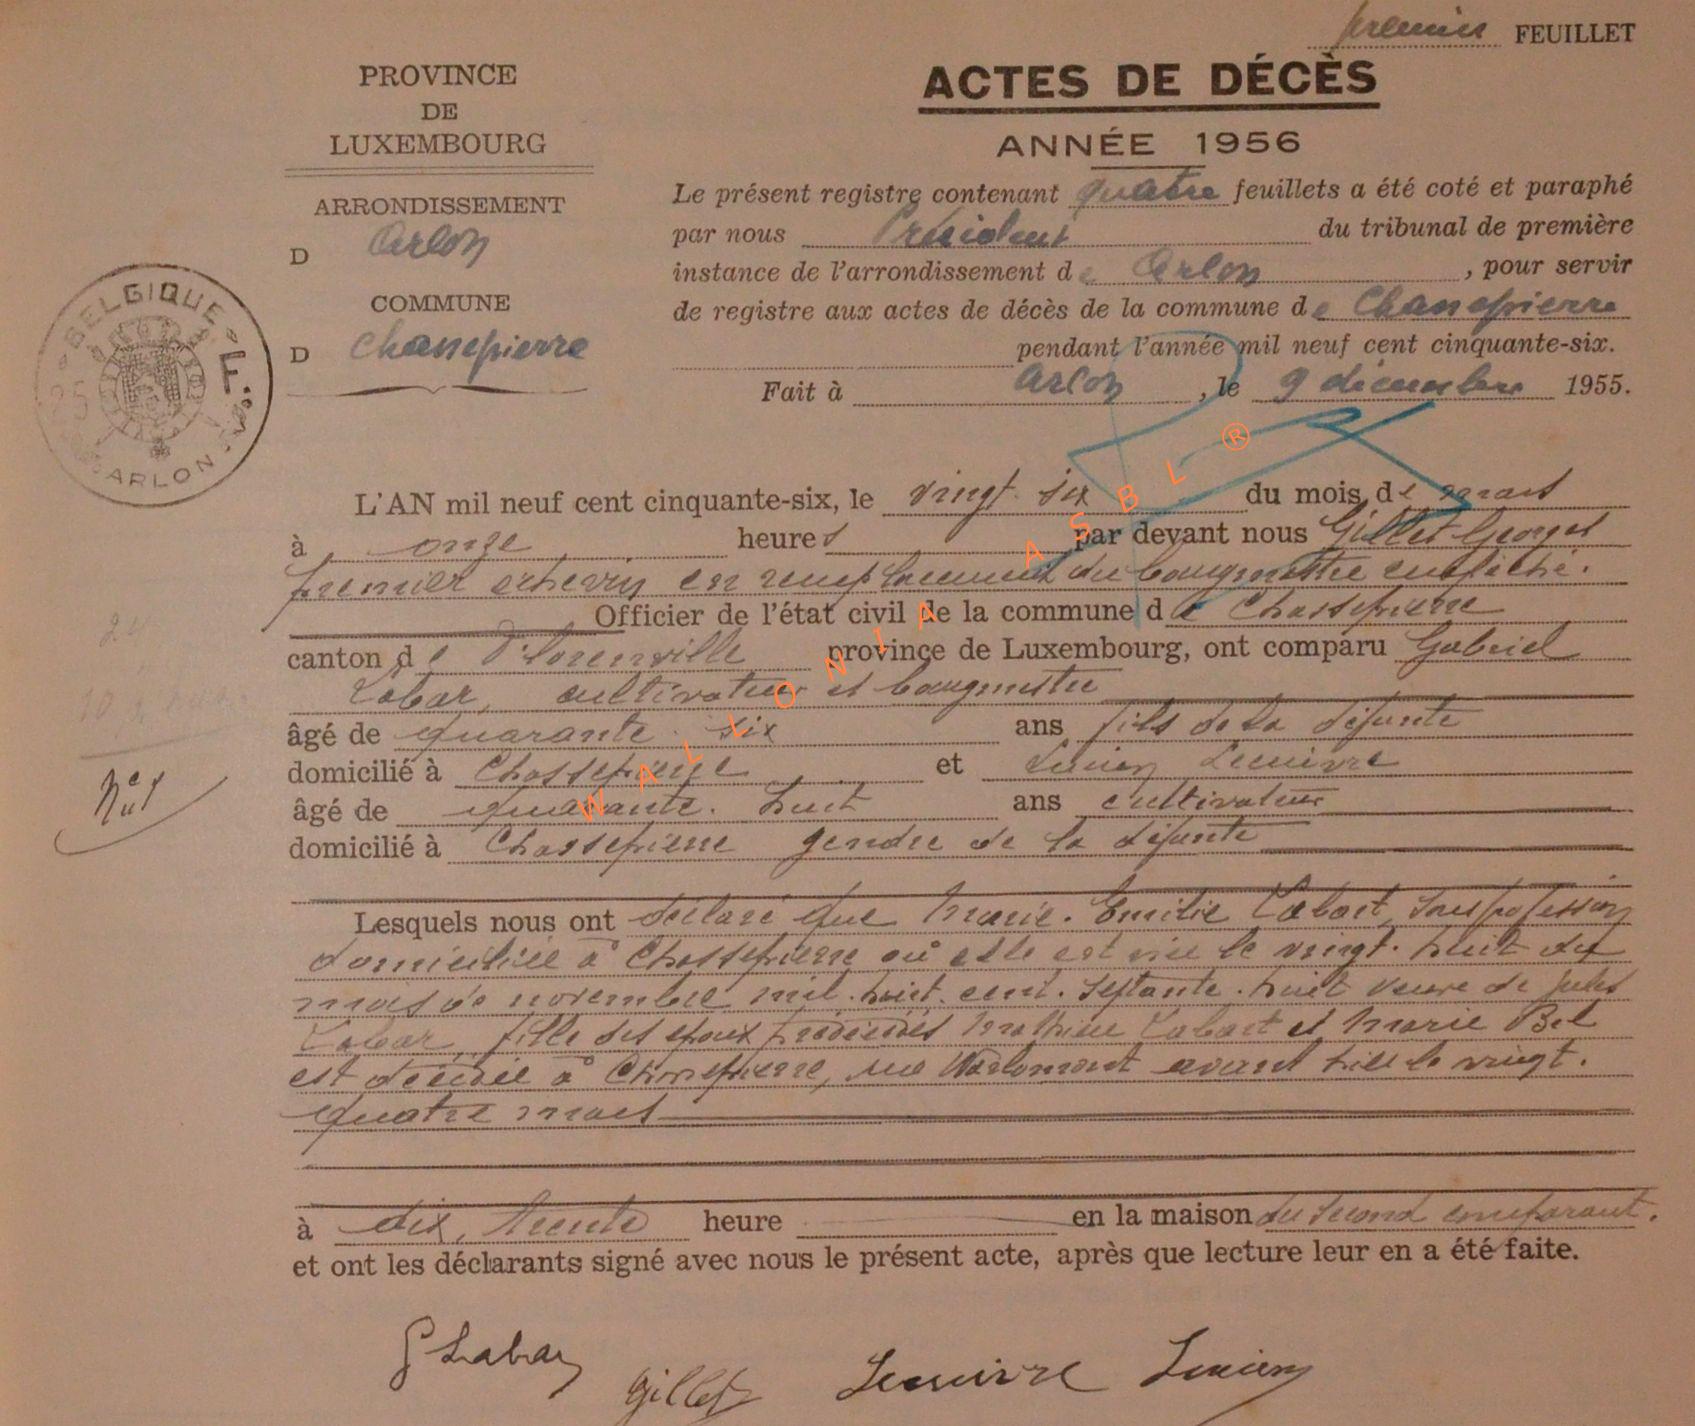 premier FEUILLET
PROVINCE
DE
LUXEMBOURG
ARRONDISSEMENT
D Arlon
COMMUNE
D Chassepierre
BELGIQUE
ARLON
ACTES DE DÉCÈS
ANNÉE 1956
Le présent registre contenant quatre feuillets a été coté et paraphé
par nous Président du tribunal de première
instance de l'arrondissement de Arlon, pour servir
de registre aux actes de décès de la commune de Chassepierre
pendant l'année mil neuf cent cinquante-six.
Fait à Arlon, le 9 décembre 1955.
L'AN mil neuf cent cinquante-six, le vingt-six du mois de mars
à onze heures par devant nous Gillet Georges
premier échevin en remplacement du bourgmestre empêché.
Officier de l'état civil de la commune de Chassepierre
canton de Florenville province de Luxembourg, ont comparu Gabriel
Labar, cultivateur et bourgmestre
âgé de quarante-six ans fils de la défunte
domicilié à Chassepierre et Lucien Lecuivre
âgé de quarante-huit ans cultivateur
domicilié à Chassepierre gendre de la défunte
N° 1
Lesquels nous ont déclaré que Marie-Emilie Labart, sans profession
domiciliée à Chassepierre où elle est née le vingt-huit du
mois de novembre mil-huit-cent-septante-huit veuve de Jules
Labar, fille des époux prédécédés Mathieu Labart et Marie Bel
est décédée à Chassepierre, rue Warlomont avant hier le vingt-
quatre mars
à dix, trente heure en la maison du second comparant.
et ont les déclarants signé avec nous le présent acte, après que lecture leur en a été faite.
G Labar
Gillet
Lecuivre Lucien
WALLONIA ASBL ®